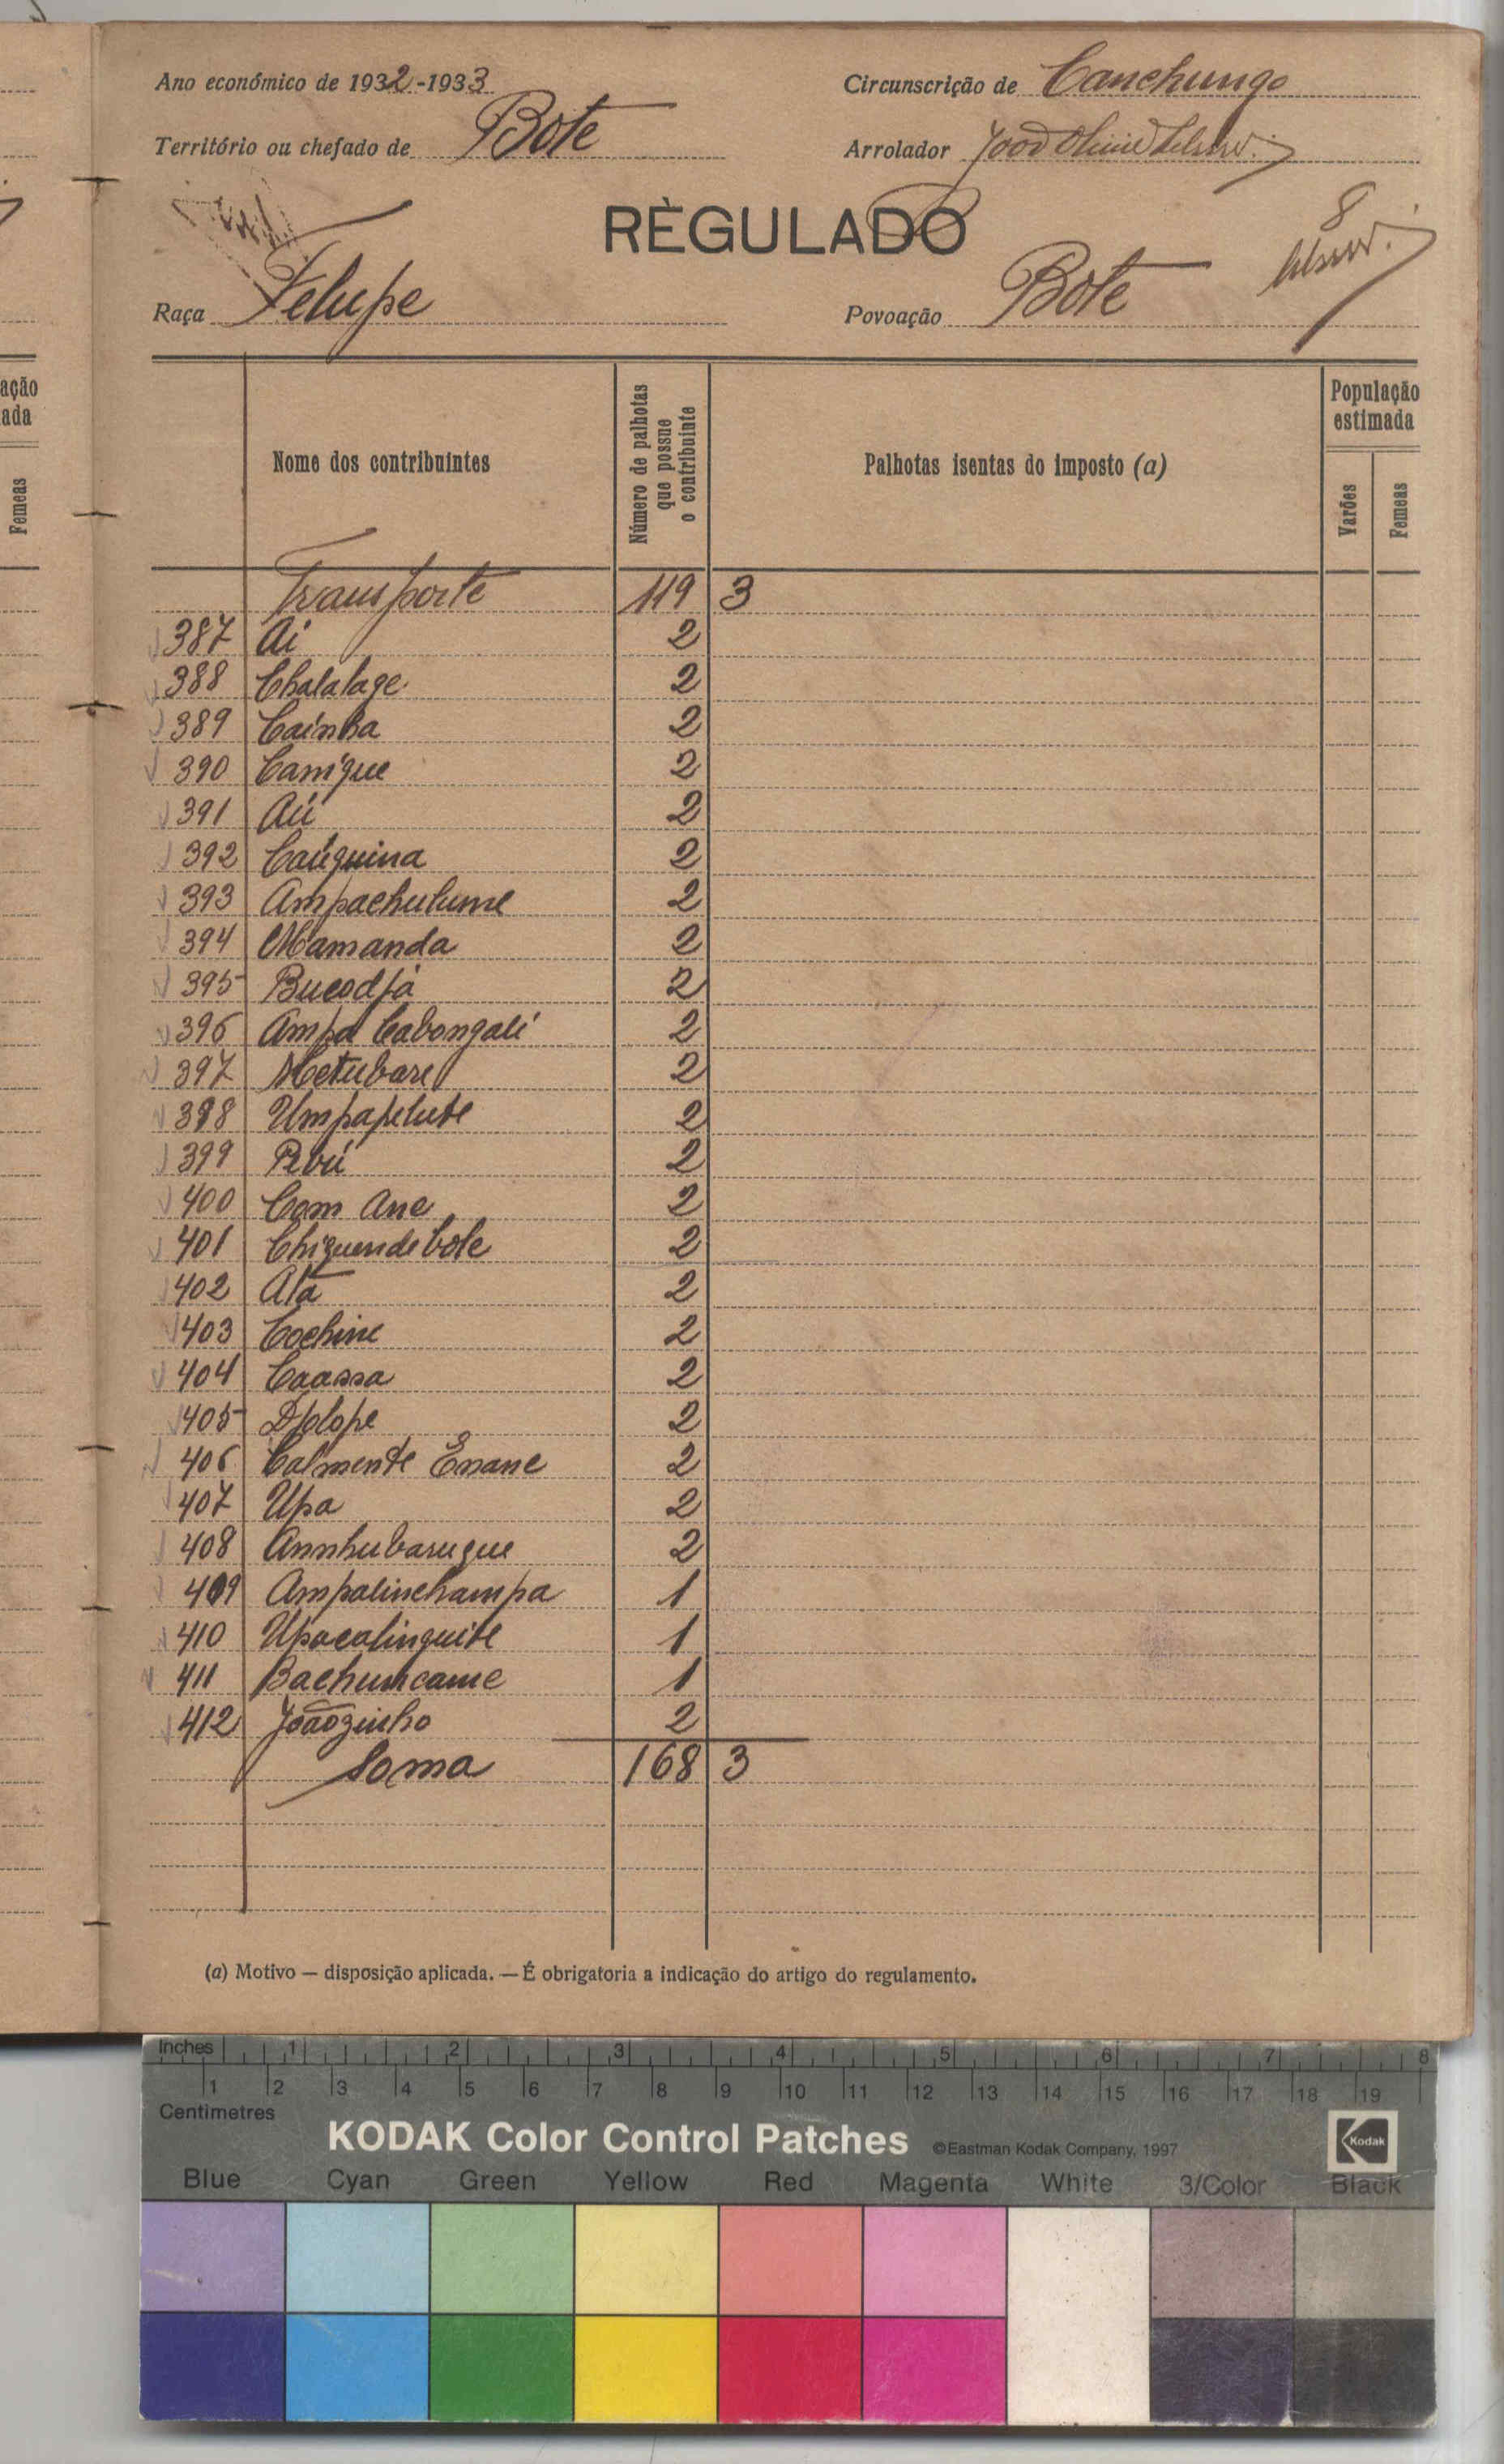 Ano económico de 1932-1933
Circunscrição de Canchungo
Território ou chefado de Bote
Arrolador João
RÈGULADO
8
Raça Felupe
Povoação Bote
ação
ada
Femeas
Nome dos contribuintes
Número de palhotas que possue o contribuinte
Palhotas isentas do imposto (a)
População estimada
Varões
Femeas
Transporte 119 3
387 Ai 2
388 Chalalage 2
389 Cainha 2
390 Canigue 2
391 Aú 2
392 Caúguina 2
393 Ampachulume 2
394 Mamanda 2
395 Bucodjá 2
396 Ampa Cabongali 2
397 Metubare 2
398 Umpapelute 2
399 2
400 Com Ane 2
401 Chiguendebole 2
402 Atá 2
403 Cochine 2
404 Caassa 2
405 Djolope 2
406 Calmente Enane 2
407 Upa 2
408 Annhubarugue 2
409 Ampalinchampa 1
410 Upacalinguite 1
411 Bachumcame 1
412 Joãozinho 2
Soma 168 3
(a) Motivo — disposição aplicada. — É obrigatoria a indicação do artigo do regulamento.
Inches 1 2 3 4 5 6 7 8
1 2 3 4 5 6 7 8 9 10 11 12 13 14 15 16 17 18 19
Centimetres
KODAK Color Control Patches ©Eastman Kodak Company, 1997 Kodak
Blue Cyan Green Yellow Red Magenta White 3/Color Black